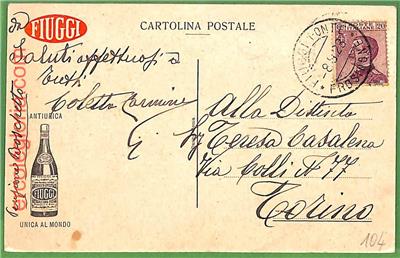 FIUGGI
CARTOLINA POSTALE
da
Saluti affettuosi a
tutti
Coletta Carmine
Pensione Boschetto
ANTIURICA
FIUGGI
UNICA AL MONDO
FIUGGI FONTE
FROSINONE
Alla Distinta
Teresa Casalena
Via Colli N 77
Torino
104